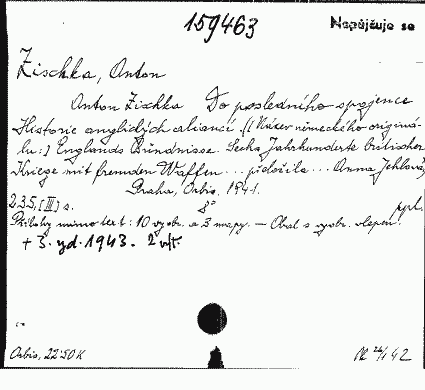 159463
Nepůjčuje se
Zischka, Anton
Anton Zischka Do posledního spojence
Historie anglických aliancí. [(Název německého originá-
lu:] Englands Bündnisse. Sechs Jahrhunderte britischer
Kriege mit fremden Waffen... přeložila... Anna Jehlová,
Praha, Orbis. 1941.
235, [III] s. 8° ppl.
Přílohy mimo text: 10 vyobr. a 3 mapy. — Obal s vyobr. vlepen.
+ 3. vyd. 1943. 2 výt.
Orbis, 22'50 K